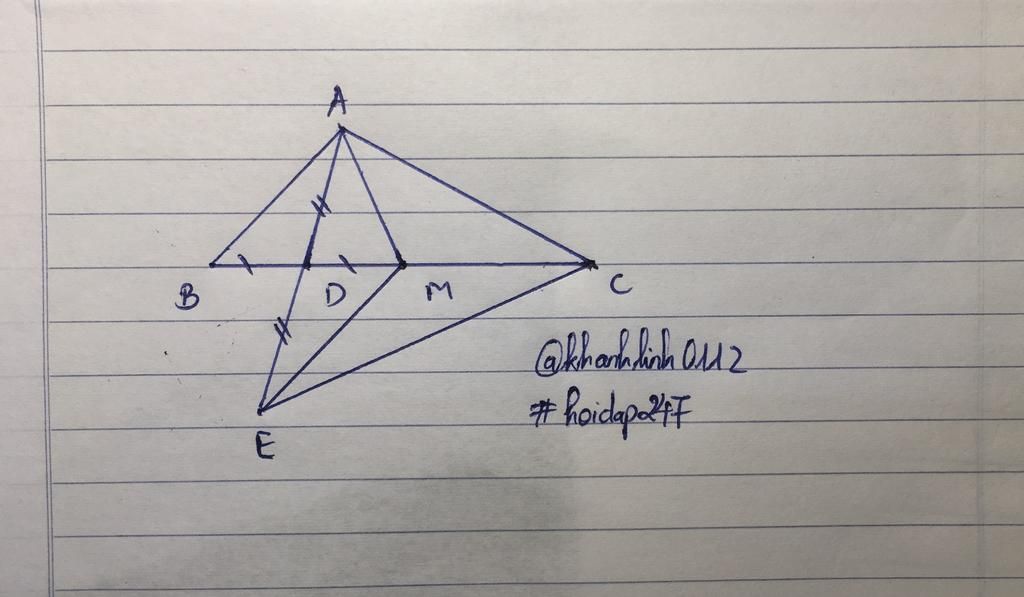 A
B D M C
E
@khanhlinh0112
#hoidap247